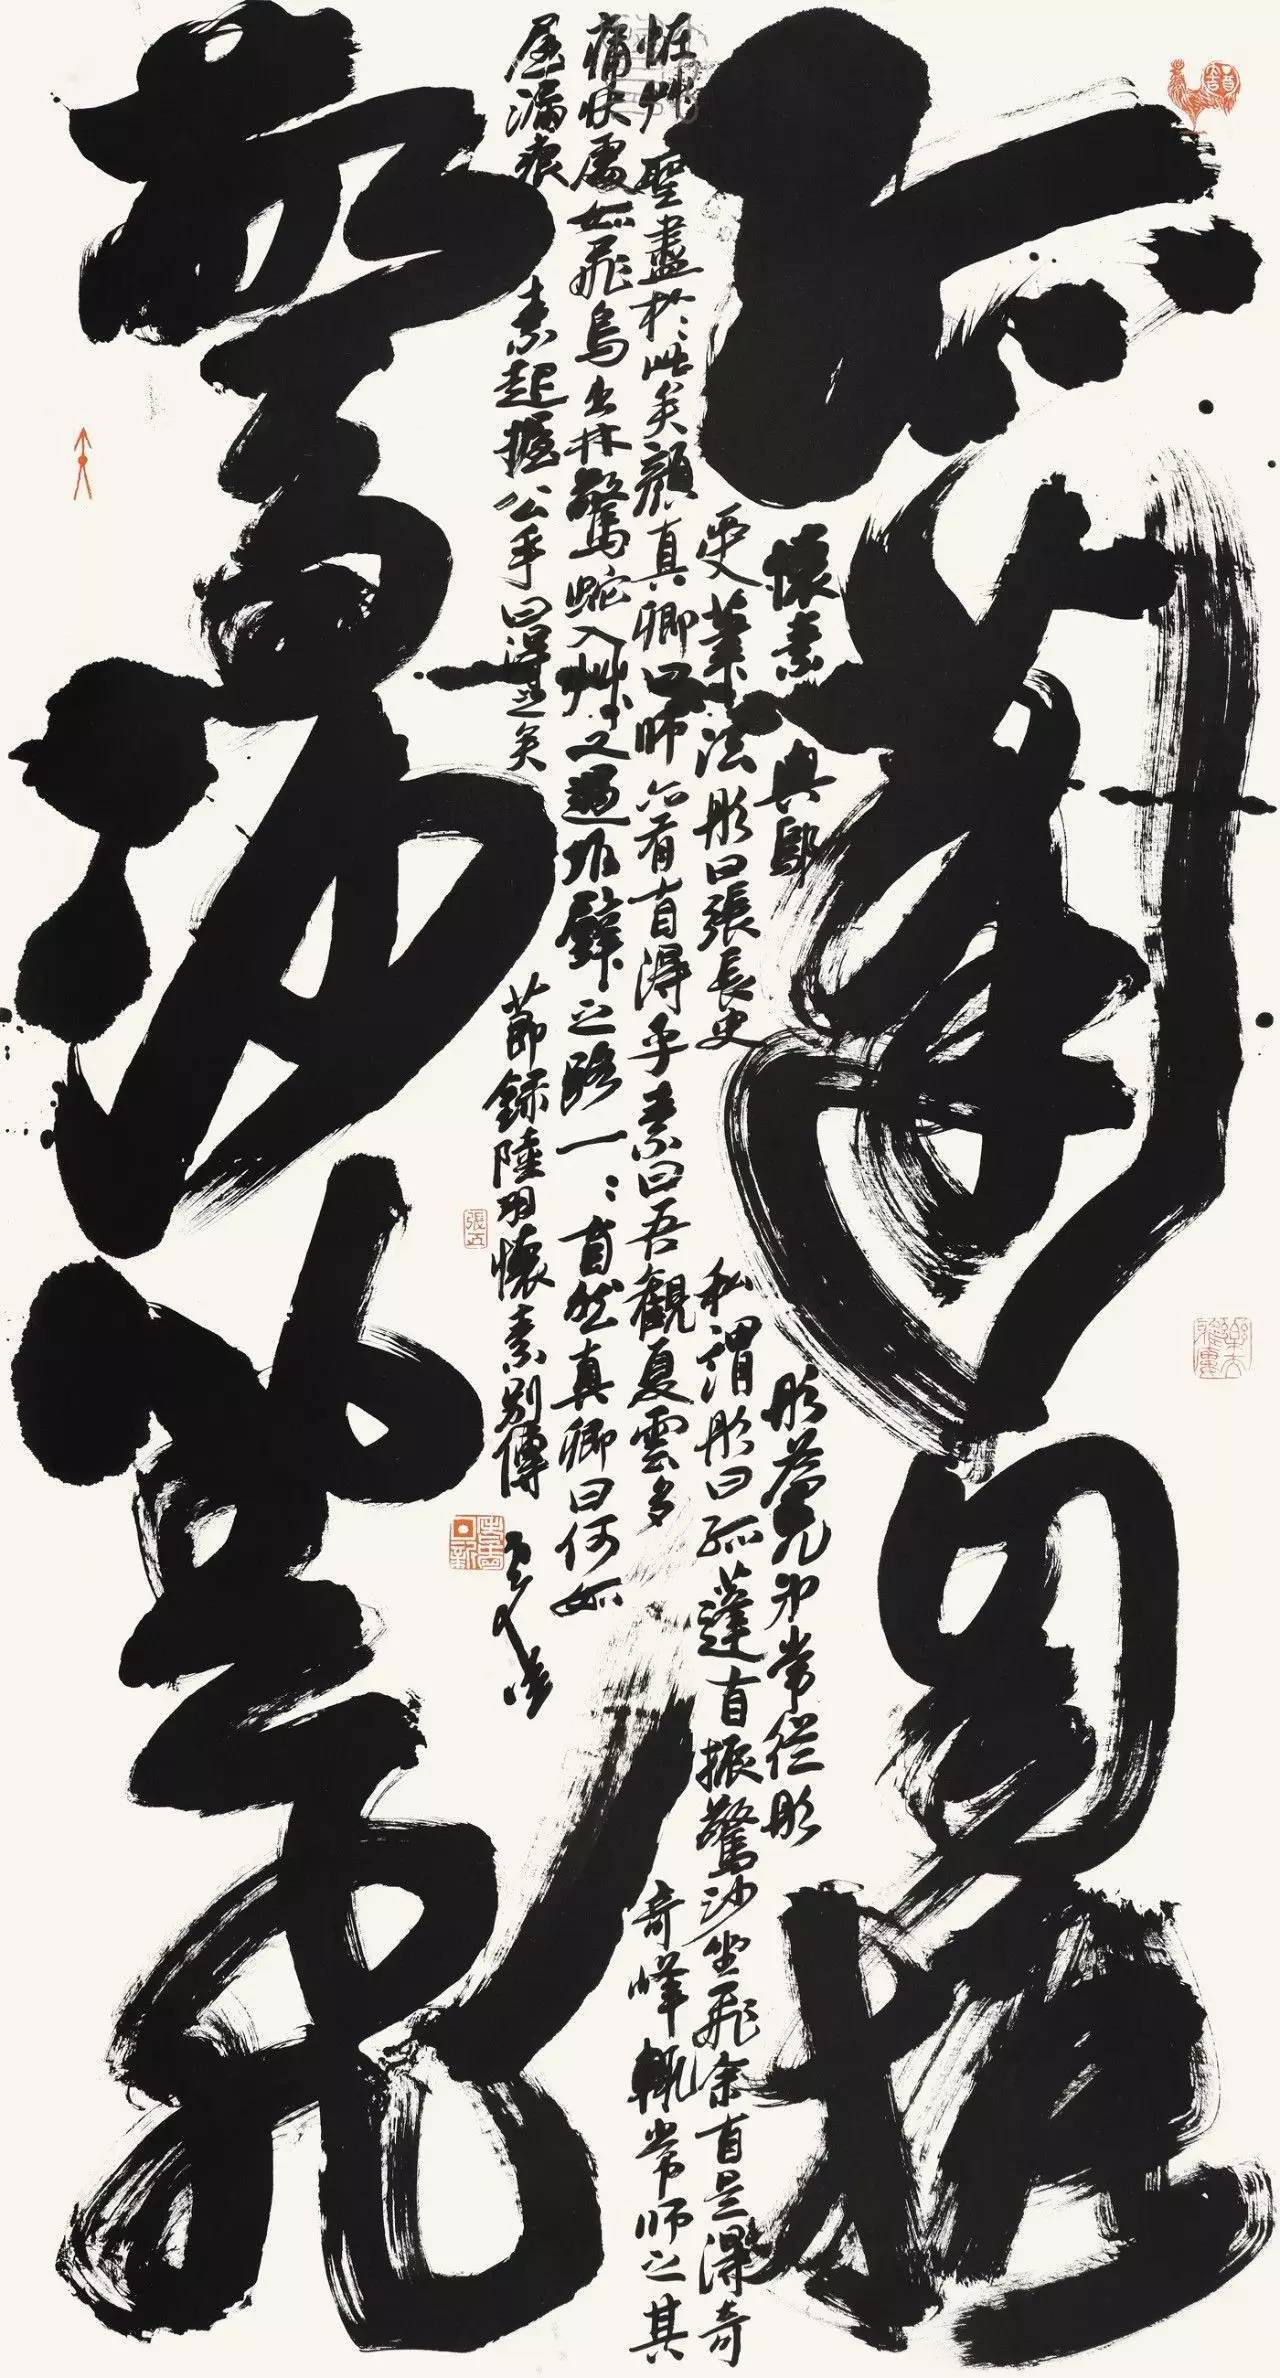 孤蓬自振
懷素與鄔彤為兄弟常從彤
受筆法彤曰張長史私謂彤曰孤蓬自振驚沙坐飛余自是得奇
怪艸聖盡於此矣顏真卿曰師亦有自得乎素曰吾觀夏雲多奇峰輒常師之其
痛快處如飛鳥出林驚蛇入艸又遇坼壁之路一一自然真卿曰何如
屋漏痕素起握公手曰得之矣節錄陸羽懷素別傳
驚沙坐飛